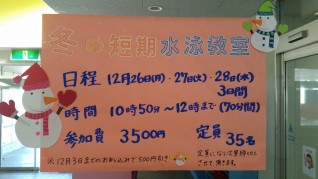 冬の短期水泳教室
日程 12月26日(月)・27日(火)・28日(水)
3日間
時間 10時50分〜12時まで(70分間)
参加費 3500円 定員 35名
※12月3日までのお申し込みで500円引き
定員になりしだい締切りと
させて頂きます。